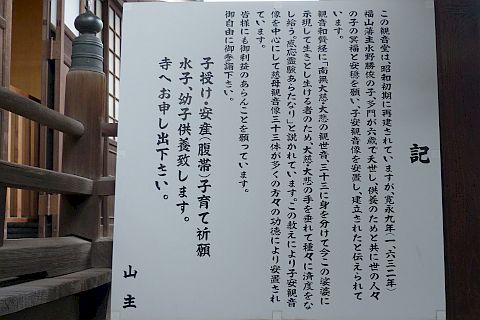 記
この観音堂は、昭和初期に再建されていますが、寛永九年(一、六三二年)
福山藩主水野勝俊の子、多門が六歳で夭世し、供養のためと共に世の人々
の子の冥福と安穏を願い、子安観音像を安置し、建立されたと伝えられて
います。
観音和賛経に、「南無大慈・大悲の観世音、三十三に身を分けて今この娑婆に
示現して生きとし生ける者のため、大慈・大悲の手を垂れて種々に済度をな
し給う。感応霊験あらたなり」と説かれています。この教えにより子安観音
像を中心にして慈母観音像三十三体が多くの方々の功徳により安置され
ています。
皆様にも御利益のあらんことを願っています。
御自由に御参詣下さい。
子授け・安産(腹帯)子育て祈願
水子、幼子供養致します。
寺へお申し出下さい。
山主